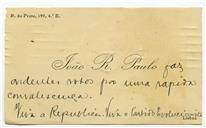 R. da Prata, 199, 4.º E.
João R. Paulo faz
ardentes votos por uma rapida
convalescença.
Viva a Republica. Viva o Partido Evolucionista
Lisboa.